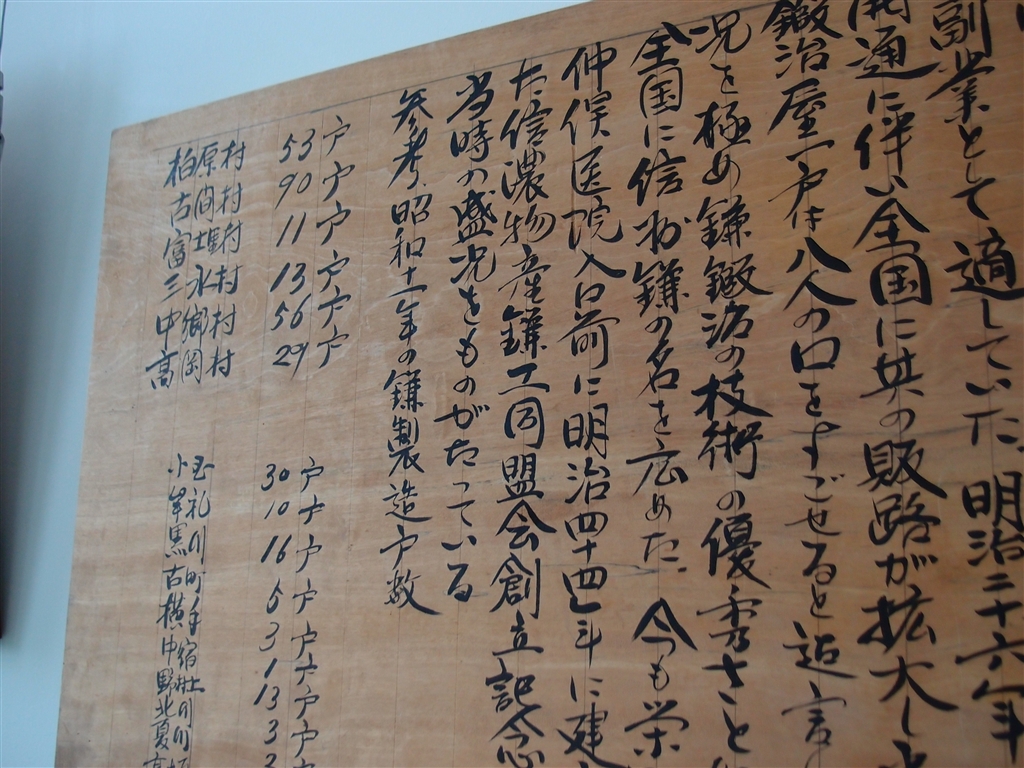 副業として適していた。明治二十六年
開通に伴い全国に其の販路が拡大し
鍛治屋一戸は八人の口をすごせると迄言
況を極め鎌鍛治の枝術の優秀さと
全国に信州鎌の名を広めた。今も栄
仲俣医院入口前に明治四十四年に建
た信濃物産鎌工同盟会創立記念
当時の盛況をものがたっている
参考 昭和十一年の鎌製造戸数
柏原村 53戸
古間村 90戸
富士里村 11戸
三水村 13戸
中郷村 56戸
高岡村 29戸
小玉 30戸
牟礼 10戸
黒川 16戸
古町 6戸
横手 3戸
中宿 1戸
野村上 13戸
北川 3戸
夏川